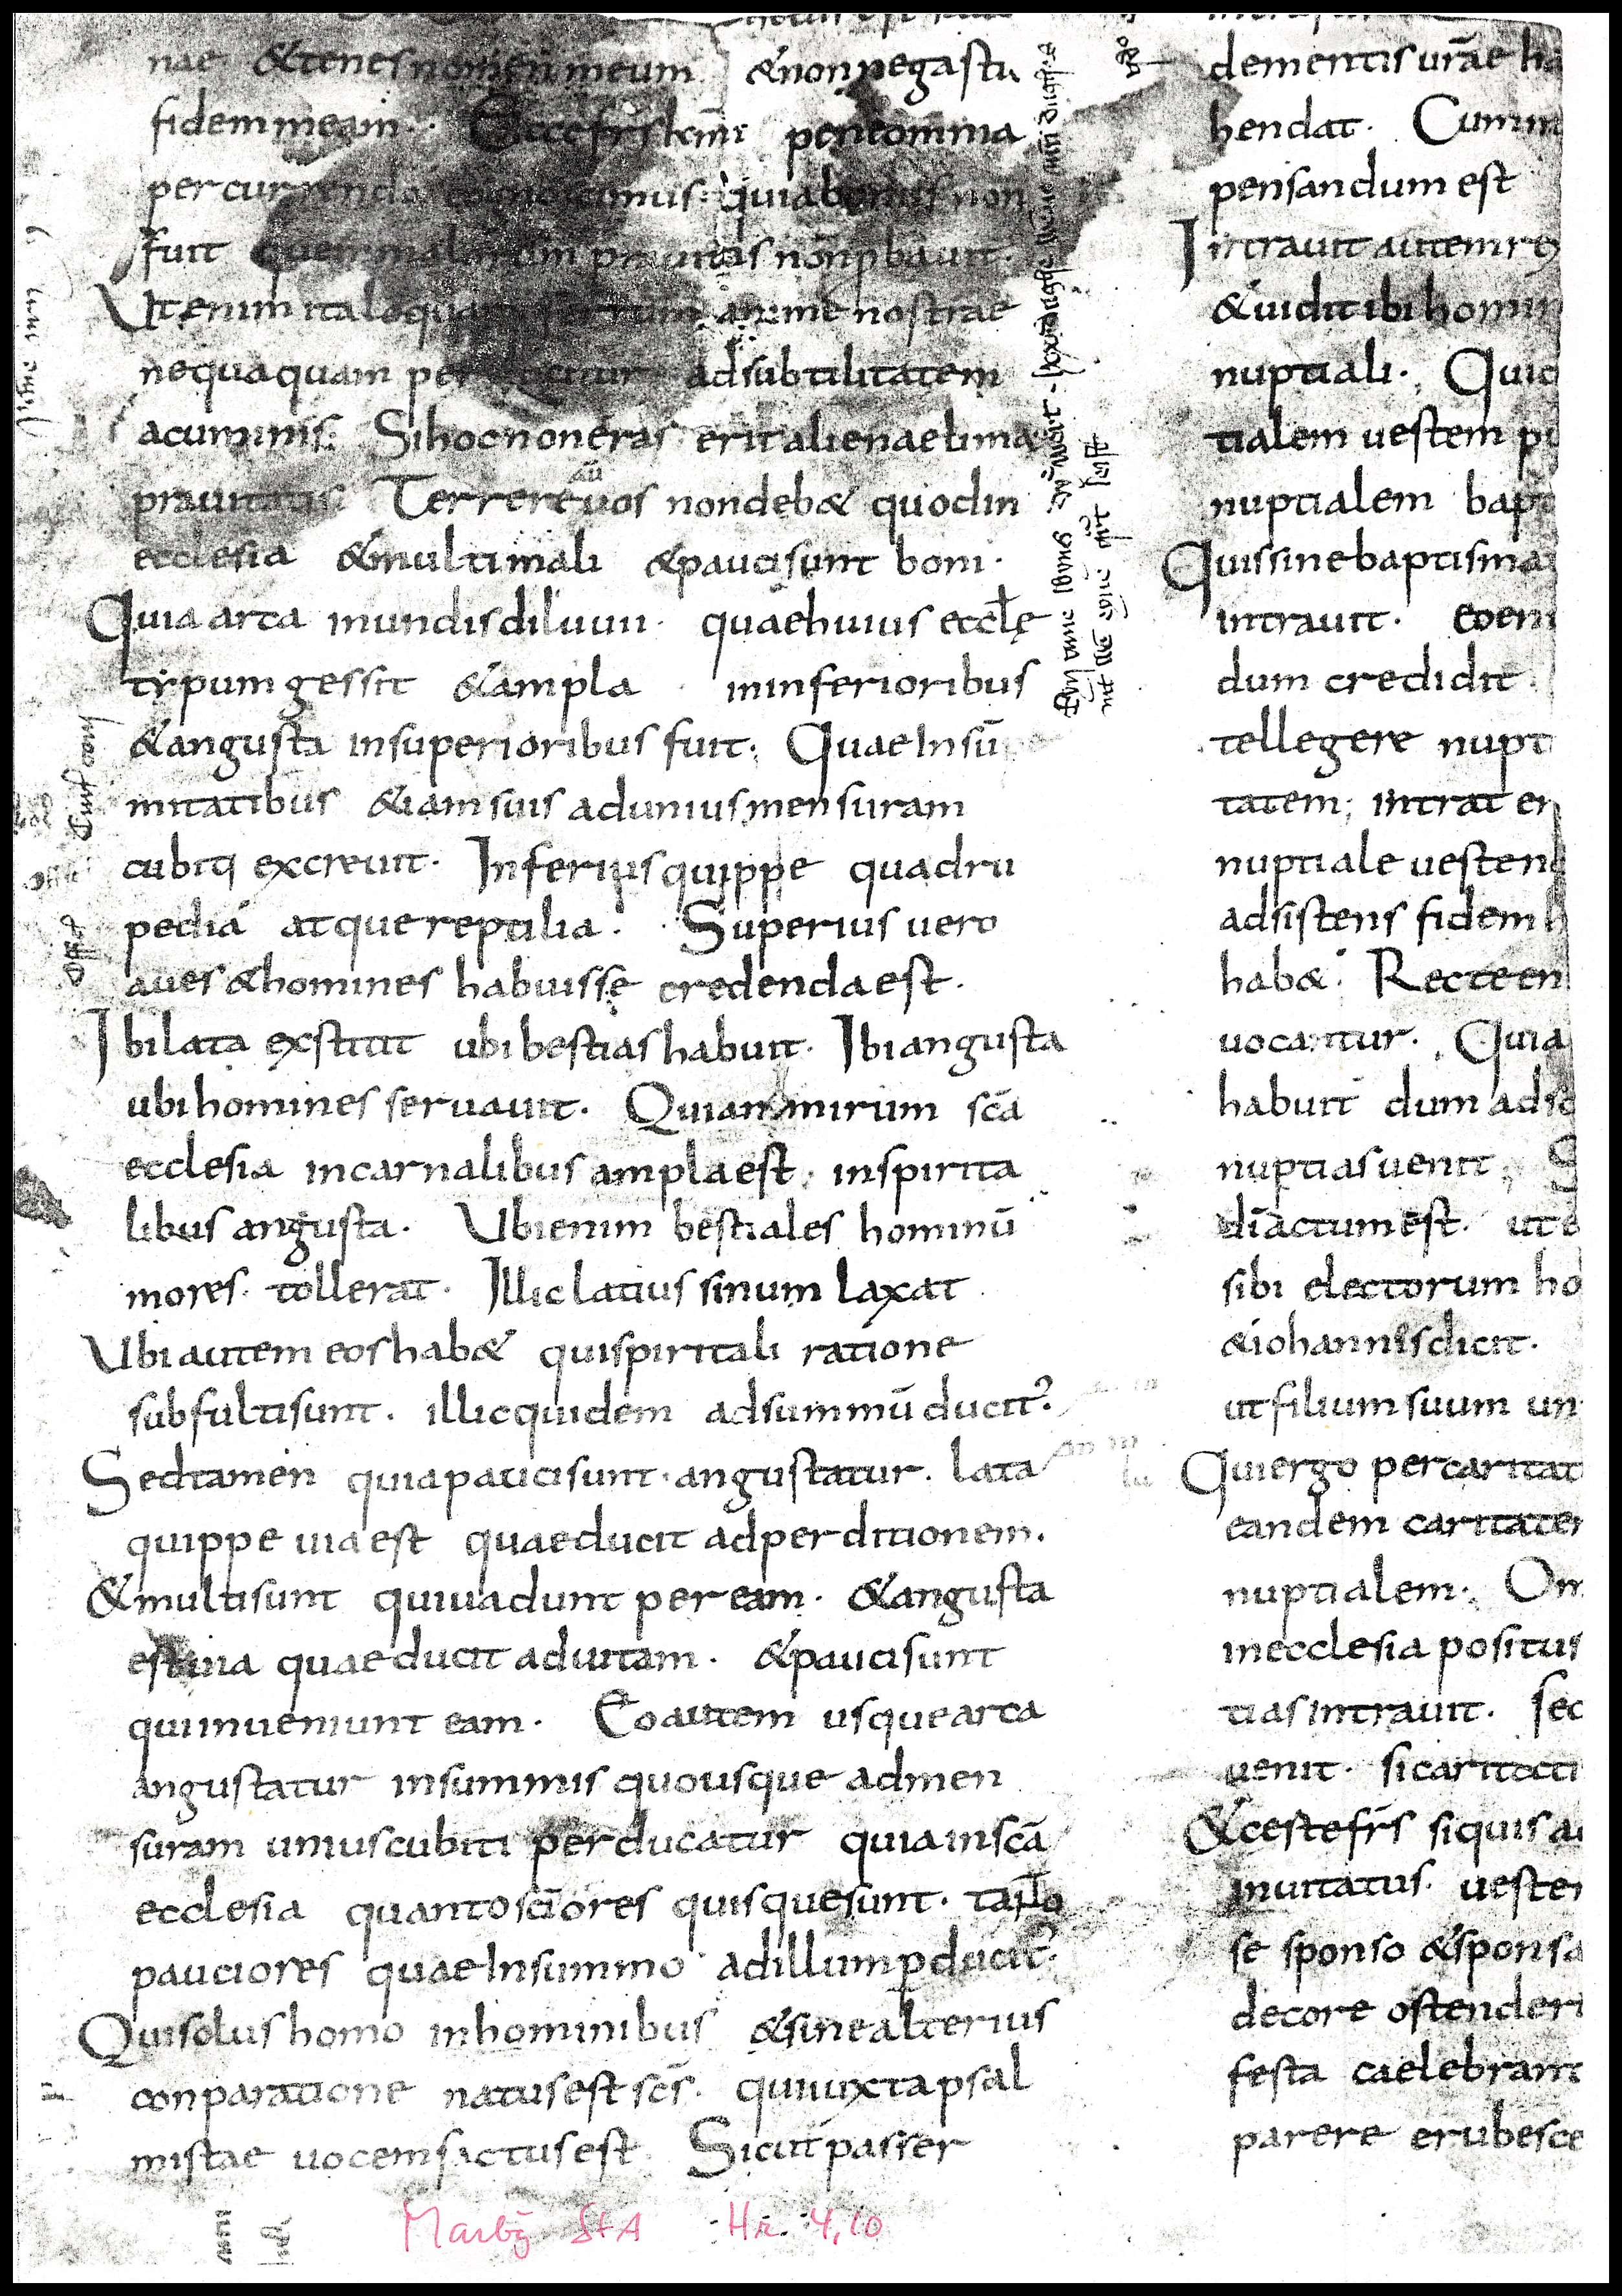 nae &tenes nomen meum &non negastu
fidem meam. Ecce fr̄s kmi pene omnia
percurrendo cognoscimus. quia bonus non
fuit quem malorum prauitas non pbauit.
Ut enim ita loquar ferrum anime nostrae
nequaquam perducitur adsubtilitatem
acuminis. Sihocnoneras erit alienaelima
prauitatis Terrere au uos nondeb& quodin
ecclesia &multimali &paucisunt boni.
Quia arca inundisdiluuii. quaehuius eccłę
typumgessit &ampla ininferioribus
&angusta insuperioribus fuit; Quaeinsū
mitatibus &iamsuis adunius mensuram
cubiti excreuit. Inferius quippe quadru
pedia atquereptilia. Superius uero
aues &homines habuisse credendaest.
Ibilata exstitit ubibestiashabuit. Ibiangusta
ubihomines seruauit. Quianimirum sc̄a
ecclesia incarnalibus amplaest; inspirita
libus angusta. Ubienim bestiales hominū
mores tollerat. Illiclatius sinum laxat
Ubiautem eoshab& quispiritali ratione
subfultisunt. illicquidem adsummū ducit?
Sedtamen quiapaucisunt. angustatur. lata
quippe uiaest quaeducit adperditionem.
&multisunt quiuadunt peream. &angusta
estuia quaeducit aduitam. &paucisunt
quiinueniunt eam. Eoautem usquearca
angustatur insummis quousque admen
suram uniuscubiti perducatur quiainsc̄a
ecclesia quantosc̄iores quisquesunt. tanto
pauciores quaeinsummo adillumpducit?
Quisolushomo inhominibus &sinealterius
conparatione natusestsc̄s. quiiuxtapsal
mistae uocemfactusest Sicutpasser
dementisurāe ha
hendat. Cumm
pensandum est
Intrauit autemrex
&uidit ibi homin
nuptiali. Quid
tialem uestem pu
nuptialem bapt
Quissinebaptisma
intrauit. eoeni
dum credidit
tellegere nupt
tatem; intrat en
nuptiale uestem
adsistens fidem h
hab&. Recteen
uocantur. Quia
habuit dum adsc
nuptiasuenit;
dīactumest. ute
sibi electorum ho
&iohannisdicit.
utfilium suum un
Quiergo percaritat
eandem caritatem
nuptialem. Om
inecclesia positus
tiasintrauit. sed
uenit. sicaritati
&cestefr̄s siquis a
inuitatus. uestem
se sponso &sponsa
decore ostenderi
festa caelebrant
parere erubesce
Marbg StA Hr. 4,10